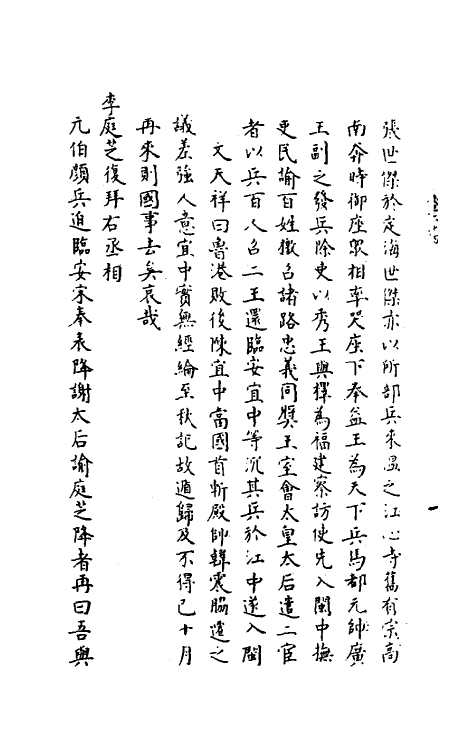 張世傑於定海世傑亦以所部兵來温之江心寺舊有宗高
南奔時御座眾相率哭座下奉益王為天下兵馬都元帥廣
王副之發兵除吏以秀王與檡為福建察訪使先入閩中撫
吏民諭百姓檄召諸路忠義同奬王室會太皇太后遣二宦
者以兵百人召二王還臨安宜中等沉其兵於江中遂入閩
文天祥曰魯港敗後陳宜中當國首斬殿帥韓震脇遷之
議差強人意宜中實無經綸至秋託故遁歸及不得已十月
再來則國事去矣哀哉
李庭芝復拜右丞相
元伯顏兵迫臨安宋奉表降謝太后諭庭芝降者再曰吾與